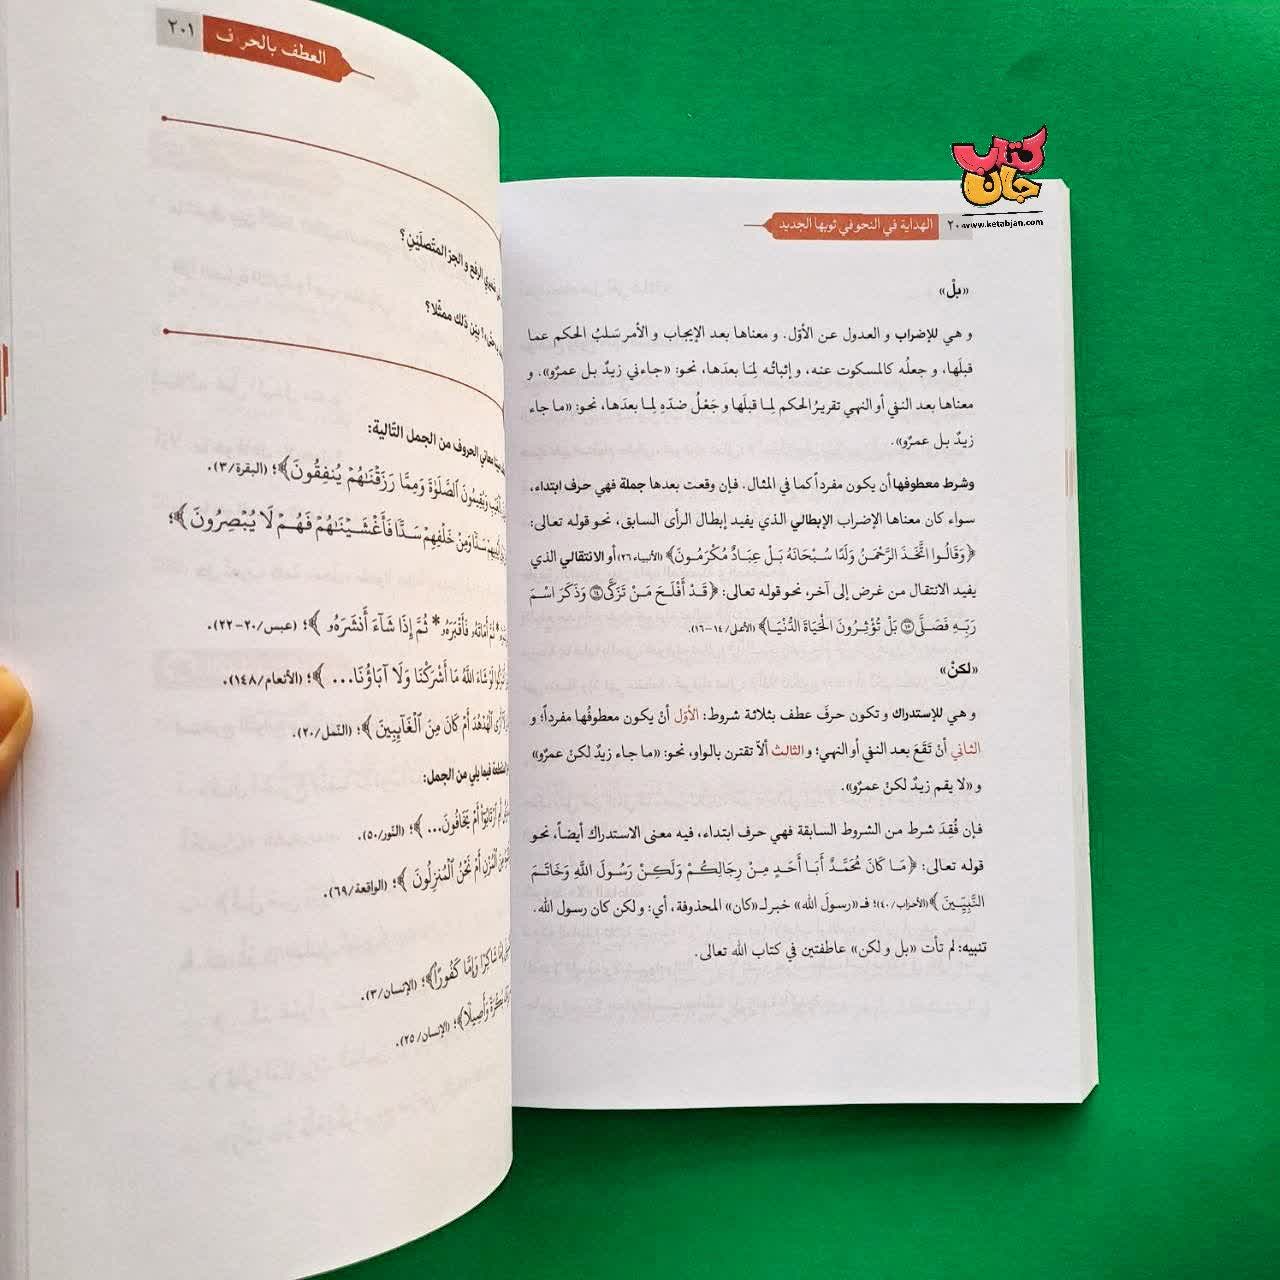 كتاب
جان
www.ketabjan.com
الهداية في النحو في ثوبها الجديد
«بلْ»
و هي للإضراب و العدول عن الأوّل. و معناها بعد الإيجاب و الأمر سَلبُ الحكم عما
قبلَها، و جعلُه كالمسكوت عنه، و إثباتُه لِمَا بعدَها، نحو: «جاءني زيدٌ بل عمرٌو». و
معناها بعد النفي أو النهي تقريرُ الحكم لِما قبلَها و جَعْلُ ضدّه لِما بعدَها، نحو: «ما جاء
زيدٌ بل عمرٌو».
وشرط معطوفها أن يكون مفرداً كما في المثال. فإن وقعت بعدها جملة فهي حرف ابتداء،
سواء كان معناها الإضراب الإبطالي الذي يفيد إبطال الرأى السابق، نحو قوله تعالى:
﴿وَقَالُوا اتَّخَذَ الرَّحْمَنُ وَلَدًا سُبْحَانَهُ بَلْ عِبَادٌ مُكْرَمُونَ﴾ (الأنبياء/٢٦) أو الانتقالي الذي
يفيد الانتقال من غرض إلى آخر، نحو قوله تعالى: ﴿قَدْ أَفْلَحَ مَنْ تَزَكَّى ۝١٤ وَذَكَرَ اسْمَ
رَبِّهِ فَصَلَّى ۝١٥ بَلْ تُؤْثِرُونَ الْحَيَاةَ الدُّنْيَا﴾ (الأعلى/١٤-١٦).
«لكنْ»
و هي للإستدراك و تكون حرفَ عطف بثلاثة شروط: الأوّل أنْ يكون معطوفُها مفرداً؛ و
الثاني أنْ تَقَعَ بعد النفي أو النهي؛ و الثالث ألاّ تقترن بالواو، نحو: «ما جاء زيدٌ لكنْ عمرٌو»
و «لا يقم زيدٌ لكنْ عمرٌو».
فإن فُقِدَ شرط من الشروط السابقة فهي حرف ابتداء، فيه معنى الاستدراك أيضاً، نحو
قوله تعالى: ﴿مَا كَانَ مُحَمَّدٌ أَبَا أَحَدٍ مِنْ رِجَالِكُمْ وَلَكِنْ رَسُولَ اللَّهِ وَخَاتَمَ
النَّبِيِّينَ﴾ (الأحزاب/٤٠)؛ فـ «رسولَ الله» خبر لـ «كان» المحذوفة، أي: و لكن كان رسول الله.
تنبيه: لم تأت «بل و لكن» عاطفتين في كتاب الله تعالى.
العطف بالحرف ٢٠١
الرفع و الجرّ المتّصلَيْنِ؟
بيّن ذلك ممثّلا؟
معاني الحروف من الجمل التّالية:
وَيُقِيمُونَ ٱلصَّلَوٰةَ وَمِمَّا رَزَقْنَٰهُمْ يُنفِقُونَ﴾؛ (البقرة/٣).
سَدًّا وَمِنْ خَلْفِهِمْ سَدًّا فَأَغْشَيْنَٰهُمْ فَهُمْ لَا يُبْصِرُونَ﴾؛
أَمَاتَهُۥ فَأَقْبَرَهُۥ * ثُمَّ إِذَا شَآءَ أَنشَرَهُۥ﴾؛ (عبس/٢٠-٢٢).
لَوْ شَاءَ اللَّهُ مَا أَشْرَكْنَا وَلَا آبَاؤُنَا...﴾؛ (الأنعام/١٤٨).
أَرَى ٱلْهُدْهُدَ أَمْ كَانَ مِنَ ٱلْغَآئِبِينَ﴾؛ (النّمل/٢٠).
فيما يلي من الجمل:
أَمِ ٱرْتَابُوٓا۟ أَمْ يَخَافُونَ...﴾؛ (النّور/٥٠).
ٱلْمُزْنِ أَمْ نَحْنُ ٱلْمُنزِلُونَ﴾؛ (الواقعة/٦٩).
شَاكِرًا وَإِمَّا كَفُورًا﴾؛ (الإنسان/٣).
بُكْرَةً وَأَصِيلًا﴾؛ (الإنسان/٢٥).